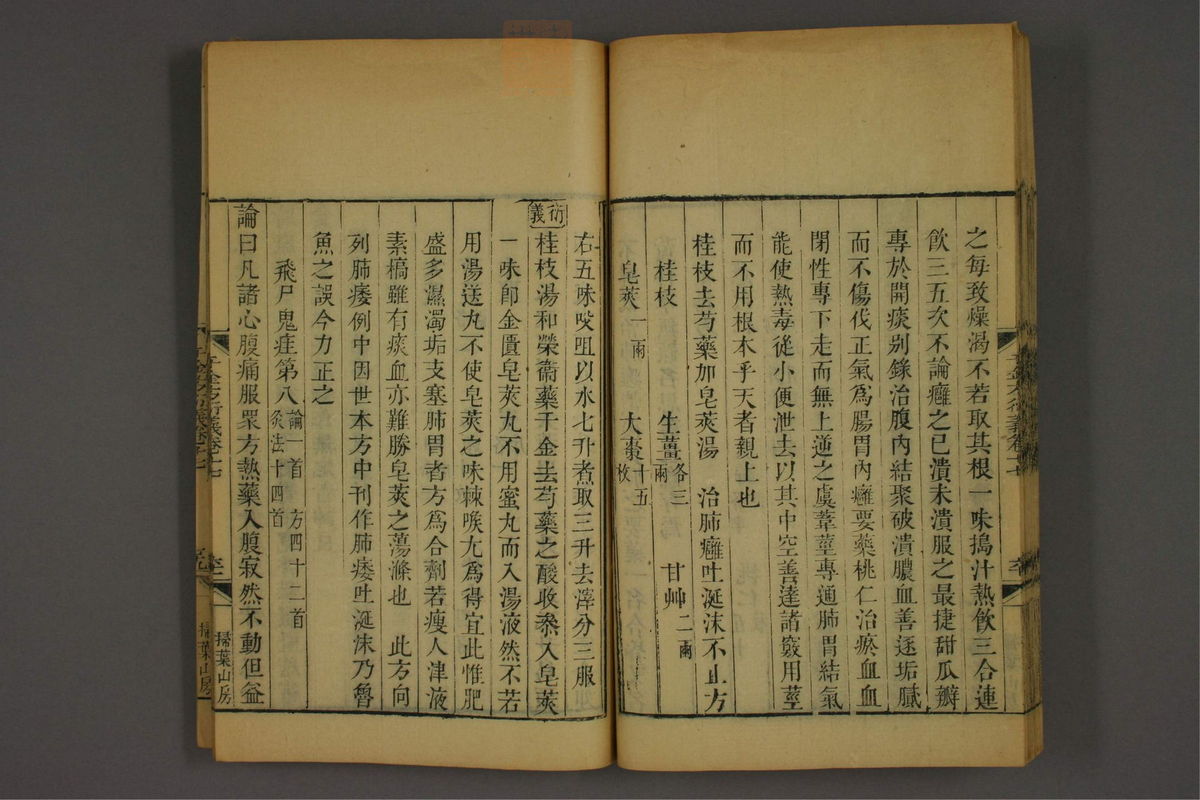 之每致燥渴不若取其根一味搗汁熱飲三合連
飲三五次不論癰之已潰未潰服之最捷甜瓜瓣
專於開痰別錄治腹內結聚破潰膿血善逐垢膩
而不傷伐正氣爲腸胃內癰要藥桃仁治瘀血血
閉性專下走而無上逆之虞葦莖專通肺胃結氣
能使熱毒從小便泄去以其中空善達諸竅用莖
而不用根本乎天者親上也
桂枝去芍藥加皂莢湯　治肺癰吐涎沫不止方
桂枝　生薑各三兩　甘艸二兩
皂莢一兩　大棗十五枚
右五味㕮咀以水七升煮取三升去滓分三服
衍義
桂枝湯和榮衞藥千金去芍藥之酸收叅入皂莢
一味卽金匱皂莢丸不用蜜丸而入湯液然不若
用湯送丸不使皂莢之味棘喉尤爲得宜此惟肥
盛多濕濁垢支塞肺胃者方爲合劑若瘦人津液
素槁雖有痰血亦難勝皂莢之蕩滌也　此方向
列肺痿例中因世本方中刊作肺痿吐涎沫乃魯
魚之誤今力正之
飛尸鬼疰第八論一首　方四十二首　灸法十四首
論曰凡諸心腹痛服眾方熱藥入腹寂然不動但益
千金方衍義卷十七
掃葉山房